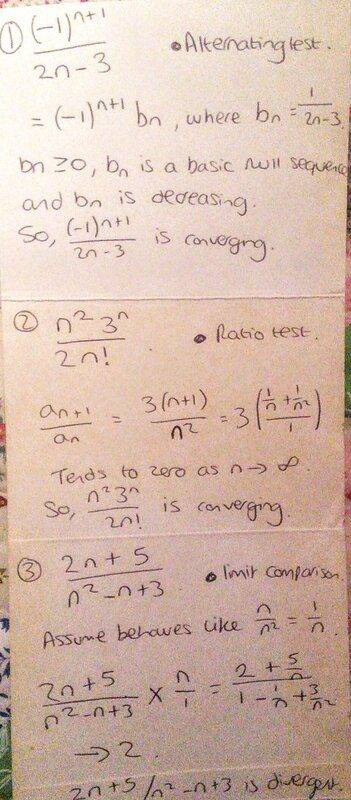 ① (-1)^(n+1) / (2n-3) • Alternating test.
= (-1)^(n+1) bn, where bn = 1/(2n-3)
bn ≥0, bn is a basic null sequence
and bn is decreasing.
So, (-1)^(n+1) / (2n-3) is converging.
② n² 3ⁿ / 2n! • Ratio test.
an+1 / an = 3(n+1) / n² = 3 ((1/n + 1/n²) / 1)
Tends to zero as n → ∞.
So, n² 3ⁿ / 2n! is converging.
③ (2n + 5) / (n² - n + 3) • limit comparison
Assume behaves like n/n² = 1/n.
(2n+5) / (n²-n+3) × n/1 = (2 + 5/n) / (1 - 1/n + 3/n²)
→ 2.
2n+5 / n² -n+3 is divergent.